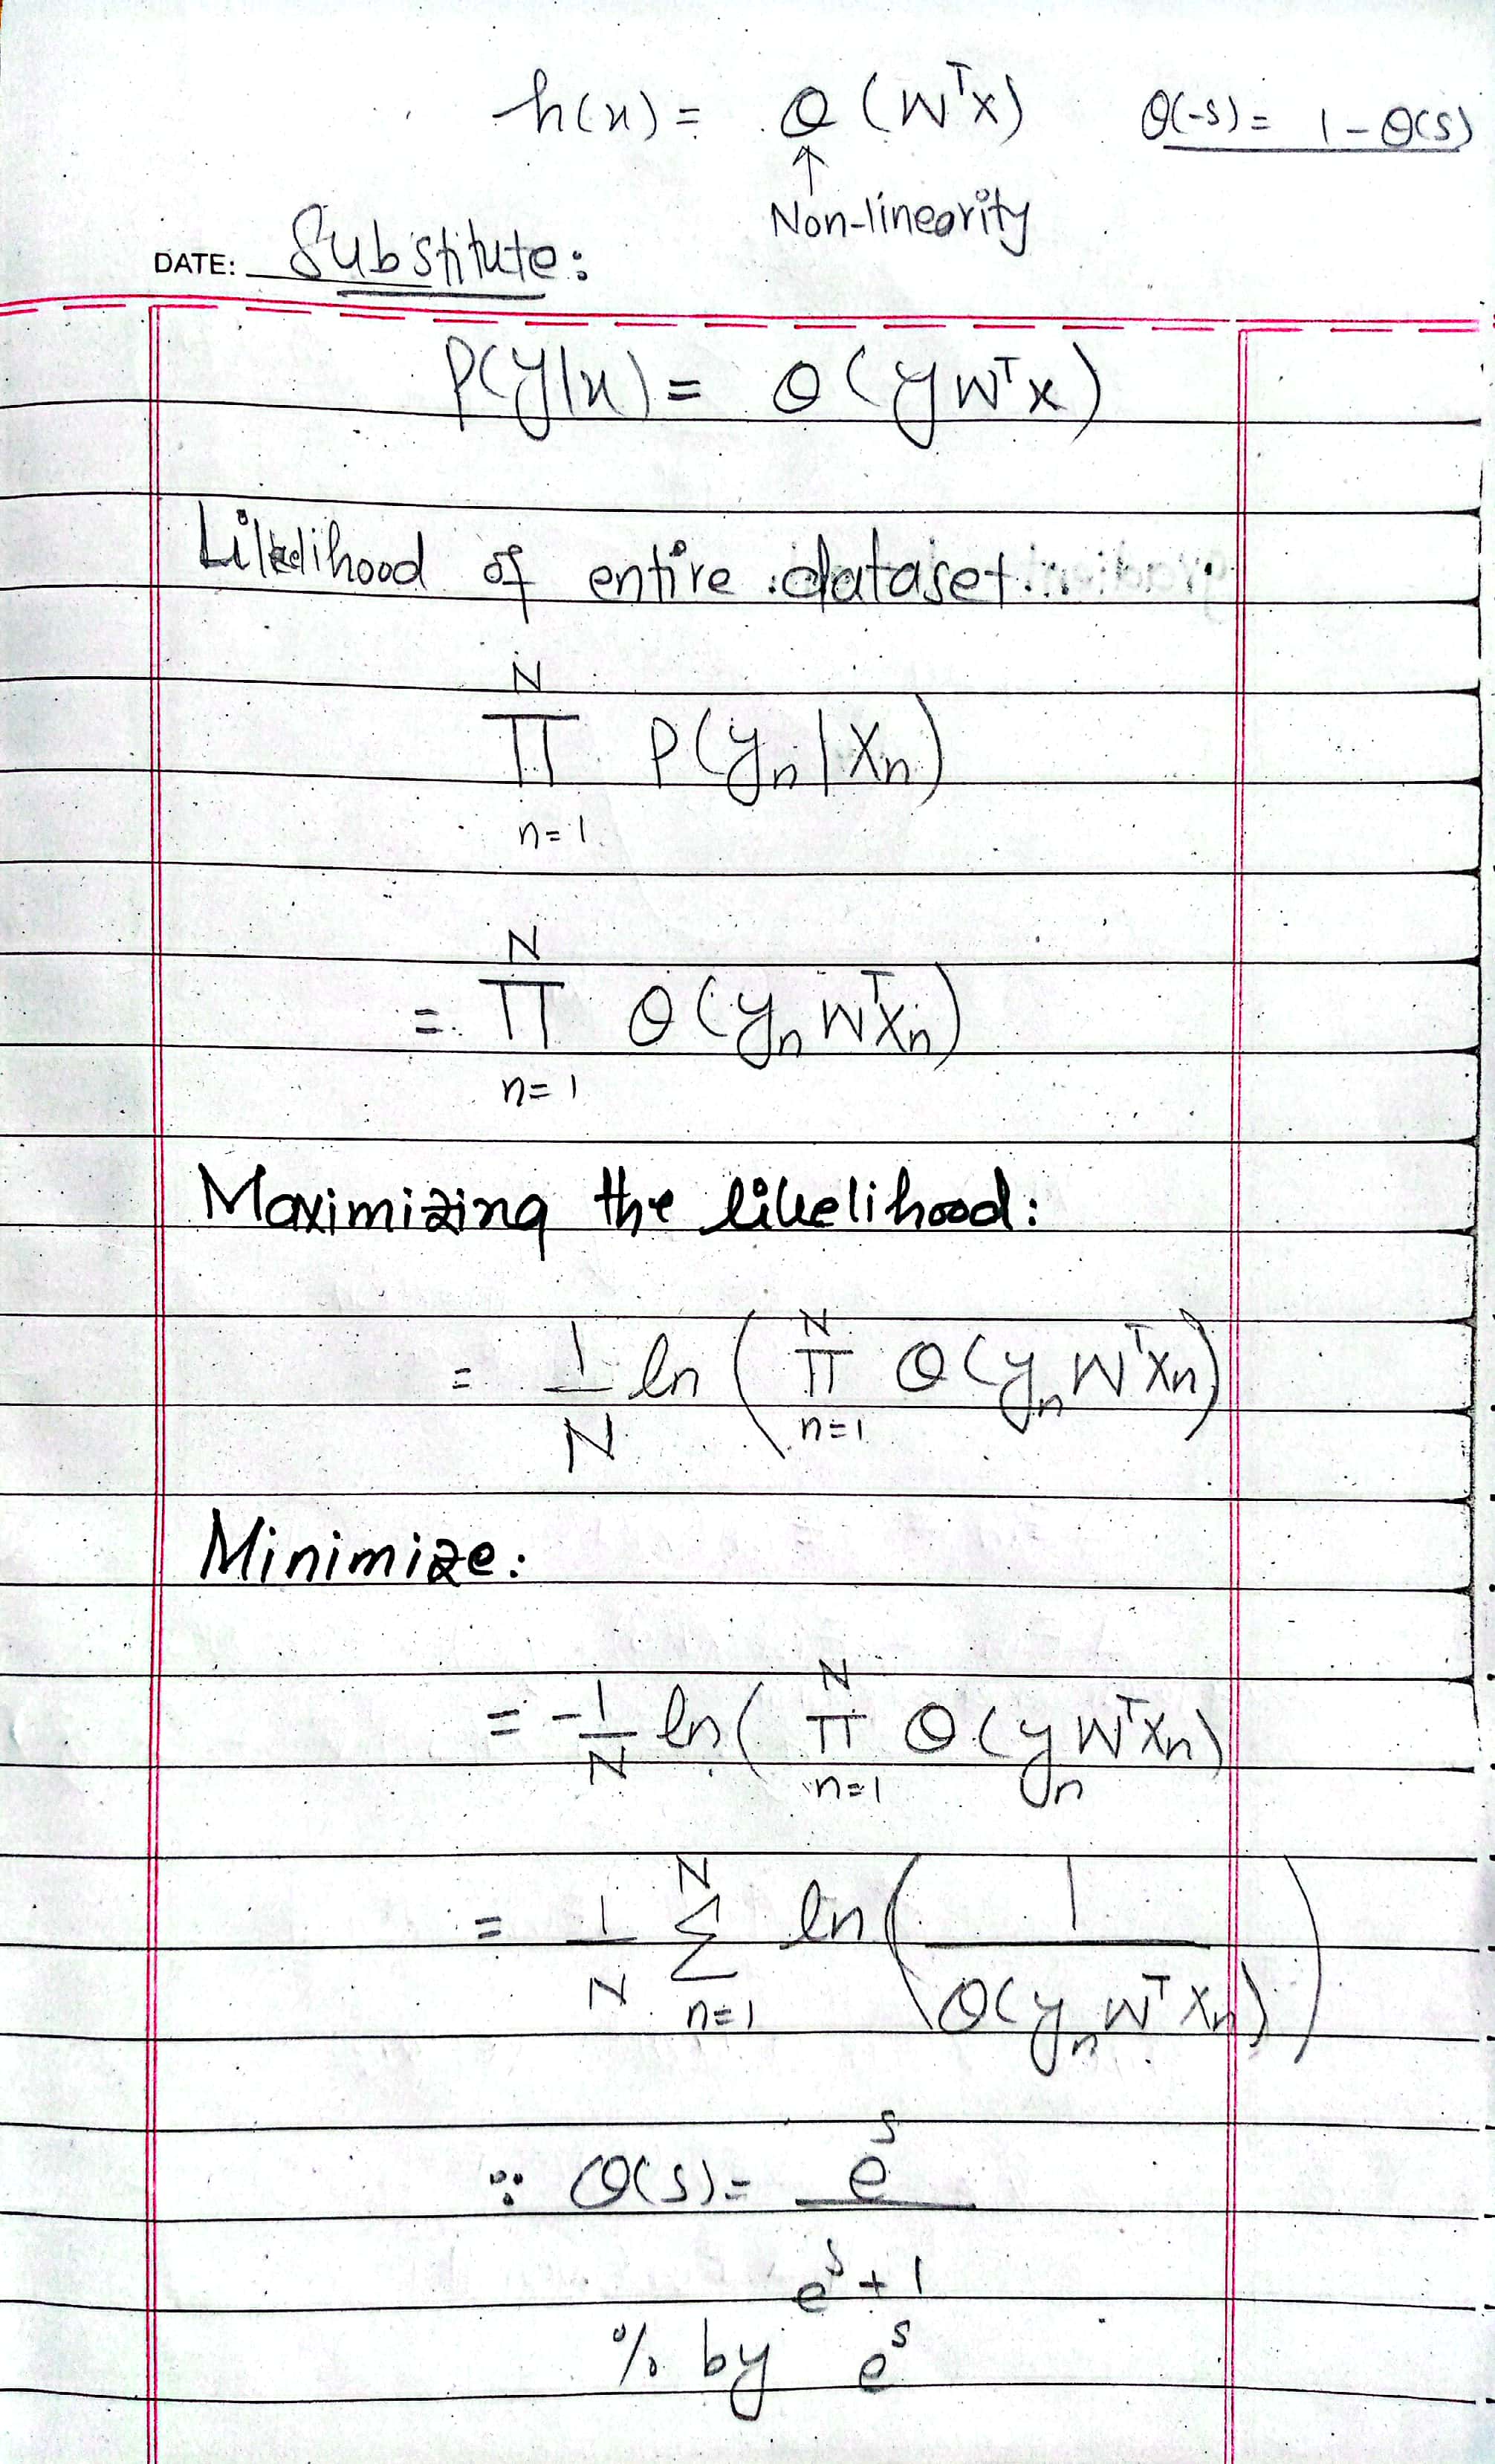 h(x) = θ (WᵀX) θ(-s) = 1 - θ(s)
↑
Non-linearity
DATE: Substitute:
P(y|x) = θ (y WᵀX)
Likelihood of entire dataset.
N
Π P(yₙ | Xₙ)
n=1
N
= Π θ (yₙ WᵀXₙ)
n=1
Maximizing the likelihood:
= 1/N ln ( N Π n=1 θ (yₙ WᵀXₙ)
Minimize:
= -1/N ln ( N Π n=1 θ (yₙ WᵀXₙ)
= 1/N N Σ n=1 ln ( 1 / θ(yₙ WᵀXₙ) )
∵ θ(s) = eˢ
eˢ + 1
% by eˢ